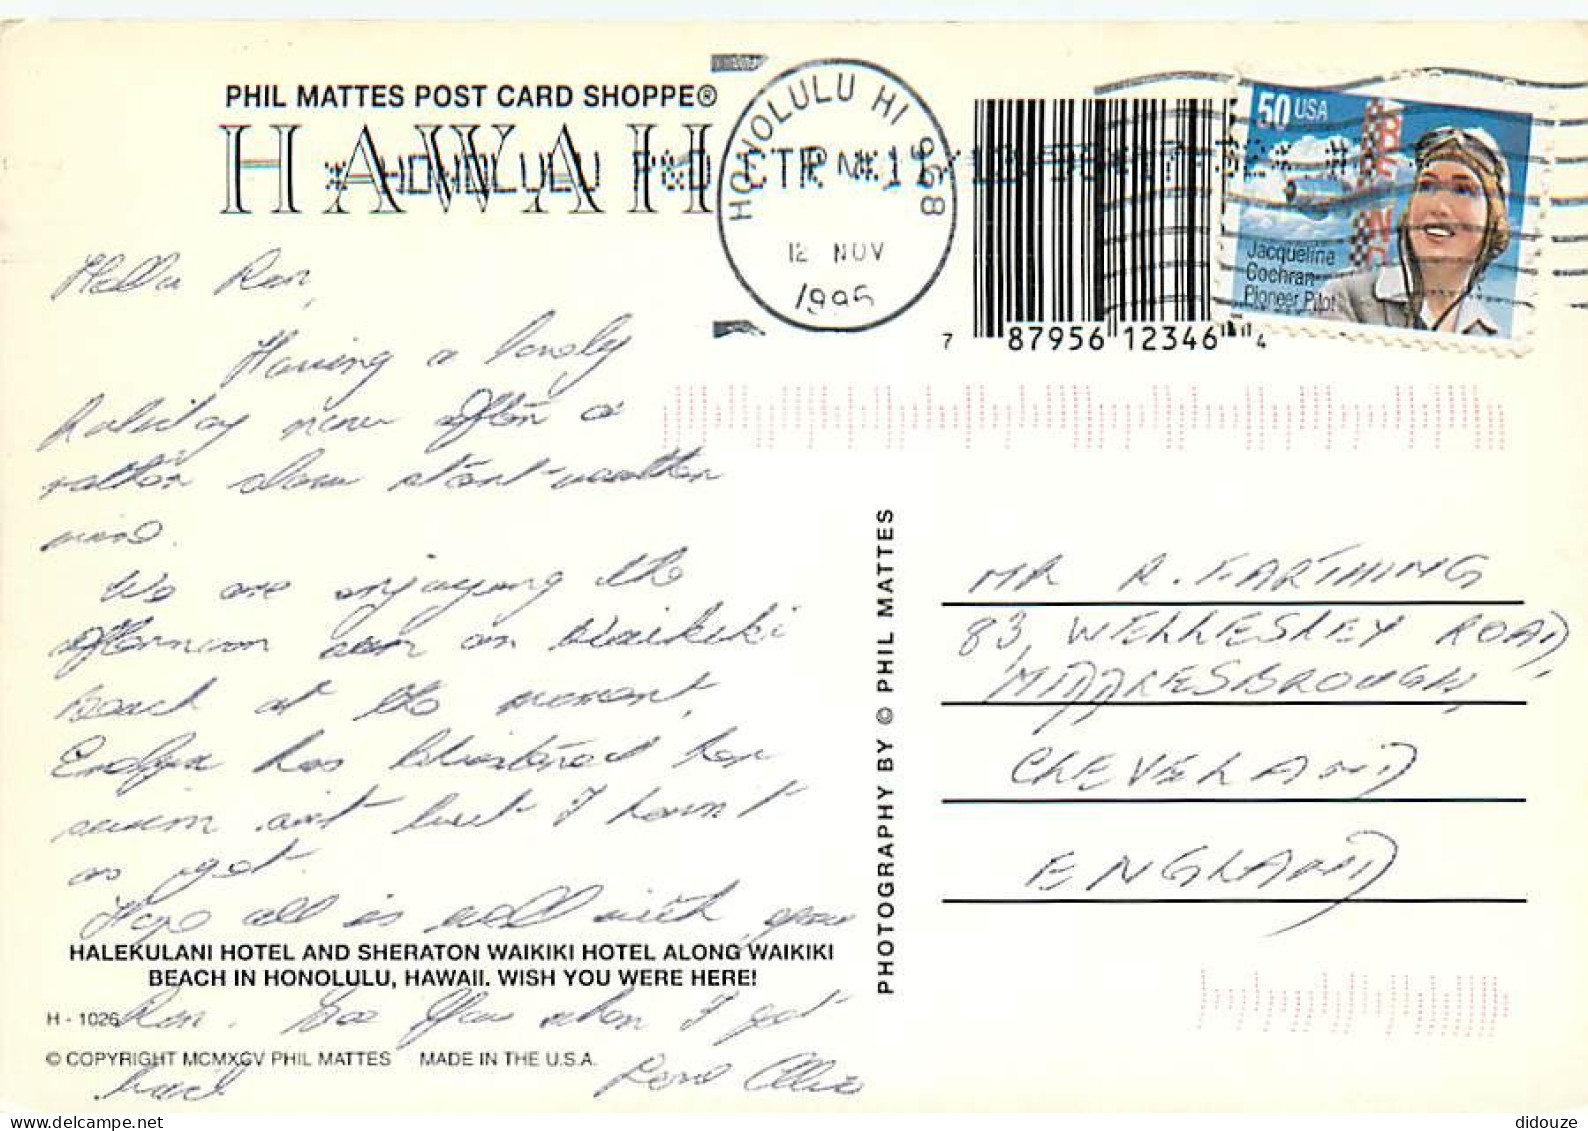 PHIL MATTES POST CARD SHOPPE®
HAWAII
HONOLULU HI 968
PM
12 NOV
1995
HONOLULU P&D CTR #1
50 USA
Jacqueline
Cochran
Pioneer Pilot
7 87956 12346 4
Hello Ron,
Having a lovely
holiday now after a
rather slow start weather
wise.
We are enjoying the
afternoon sun on Waikiki
Beach at the moment,
has blistered her
but I haven't
as yet.
Hope all is well with you
HALEKULANI HOTEL AND SHERATON WAIKIKI HOTEL ALONG WAIKIKI
BEACH IN HONOLULU, HAWAII. WISH YOU WERE HERE!
H - 1026
Ron. See you when I get
© COPYRIGHT MCMXCV PHIL MATTES MADE IN THE U.S.A.
back
PHOTOGRAPHY BY © PHIL MATTES
MR R. FARTHING
83, WELLESLEY ROAD,
MIDDLESBROUGH,
CLEVELAND
ENGLAND
didouze